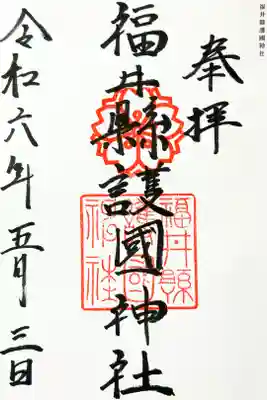 福井縣護國神社
奉拝
福井縣護國神社
福井縣護國神社
令和六年五月三日